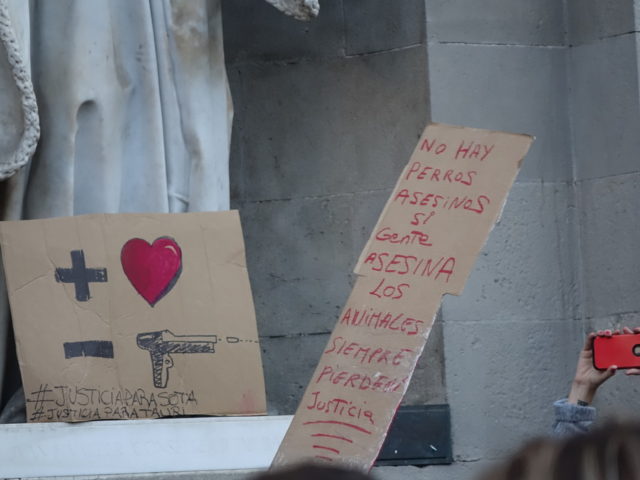 #JUSTICIAPARASOTA
#JUSTICIA PARA TAUSI
NO HAY
PERROS
ASESINOS
SI
Gente
ASESINA
LOS
ANIMALES
SIEMPRE
PIERDEN
Justicia